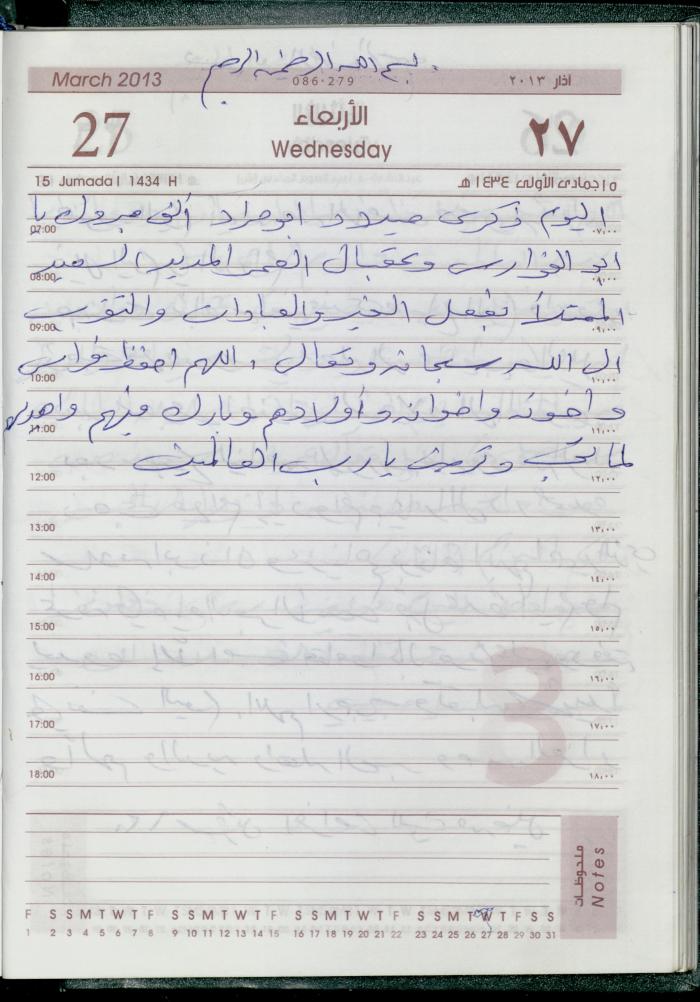 بسم الله الرحمن الرحيم
March 2013 086-279 آذار ٢٠١٣
27 الأربعاء ٢٧
Wednesday
15 Jumada I 1434 H ١٥ جمادى الأولى ١٤٣٤ هـ
اليوم ذكرى ميلاد ابو مراد الف مبروك يا
07:00 ٠٧,٠٠
ابو الفوارس وعقبال العمر المديد السعيد
08:00 ٠٨,٠٠
الممتلأ بفعل الخير والعبادات والتقرب
09:00 ٠٩,٠٠
الى الله سبحانه وتعالى ، اللهم احفظ فراس
10:00 ١٠,٠٠
واخوته واخوانه واولادهم وبارك فيهم واهديهم
11:00 ١١,٠٠
لما تحب وترضى يا رب العالمين
12:00 ١٢,٠٠
13:00 ١٣,٠٠
14:00 ١٤,٠٠
15:00 ١٥,٠٠
16:00 ١٦,٠٠
17:00 ١٧,٠٠
18:00 ١٨,٠٠
3
ملحوظات
Notes
F S S M T W T F S S M T W T F S S M T W T F S S M T W T F S S
1 2 3 4 5 6 7 8 9 10 11 12 13 14 15 16 17 18 19 20 21 22 23 24 25 26 27 28 29 30 31